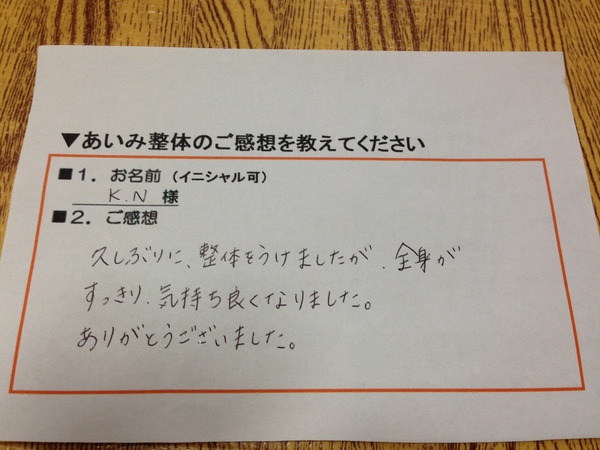 ▼あいみ整体のご感想を教えてください
■1. お名前（イニシャル可）
K.N 様
■2. ご感想
久しぶりに、整体をうけましたが、全身が
すっきり、気持ち良くなりました。
ありがとうございました。